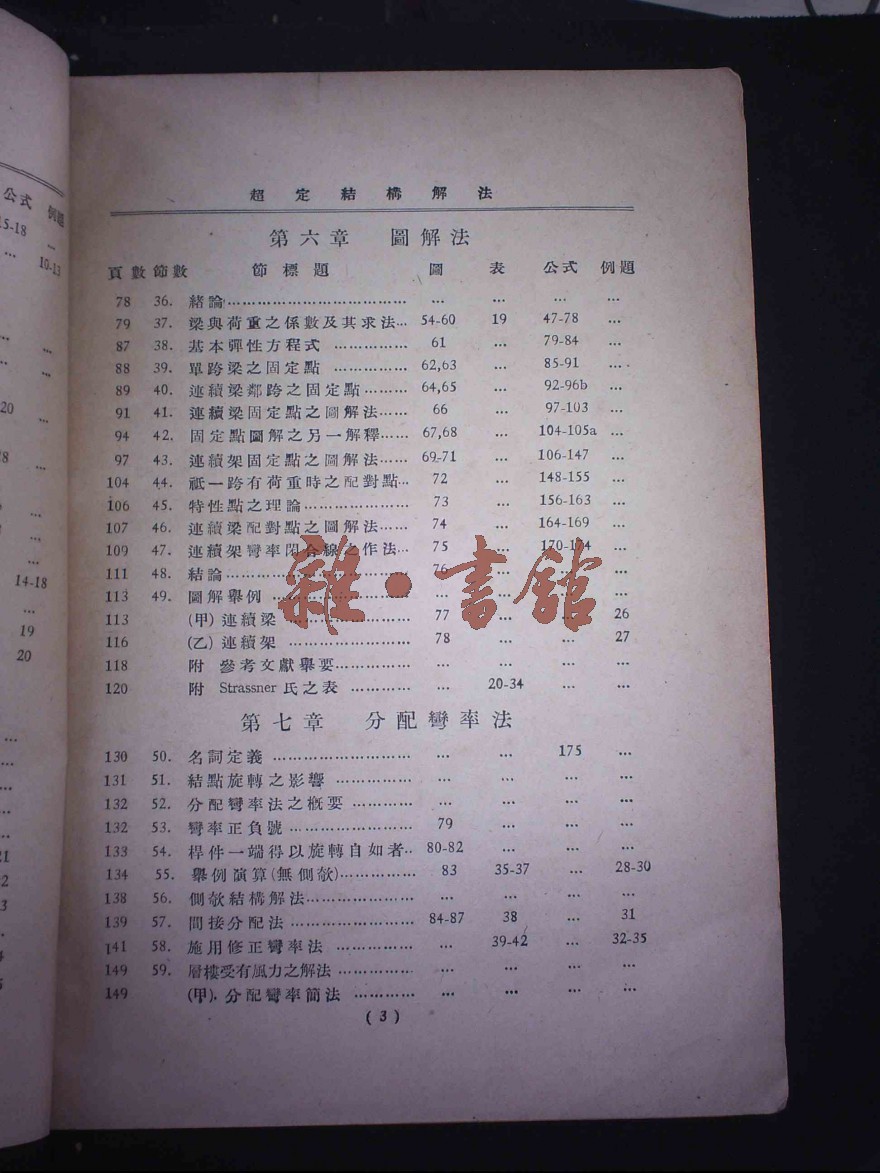 公式 例題
15-18 ...
... 10-13
20
14-18
19
20
超定結構解法
第六章 圖解法
頁數 節數 節標題 圖 表 公式 例題
78 36. 緒論 ... ... ... ...
79 37. 梁與荷重之係數及其求法 54-60 19 47-78 ...
87 38. 基本彈性方程式 61 ... 79-84 ...
88 39. 單跨梁之固定點 62,63 ... 85-91 ...
89 40. 連續梁鄰跨之固定點 64,65 ... 92-96b ...
91 41. 連續梁固定點之圖解法 66 ... 97-103 ...
94 42. 固定點圖解之另一解釋 67,68 ... 104-105a ...
97 43. 連續架固定點之圖解法 69-71 ... 106-147 ...
104 44. 祇一跨有荷重時之配對點 72 ... 148-155 ...
106 45. 特性點之理論 73 ... 156-163 ...
107 46. 連續梁配對點之圖解法 74 ... 164-169 ...
109 47. 連續架彎率閉合線之作法 75 ... 170-174 ...
111 48. 結論 76 ... ... ...
113 49. 圖解舉例 ... ... ... ...
113 (甲) 連續梁 77 ... ... 26
116 (乙) 連續架 78 ... ... 27
118 附 參考文獻舉要 ... ... ... ...
120 附 Strassner 氏之表 ... 20-34 ... ...
雜·書館
第七章 分配彎率法
130 50. 名詞定義 ... ... 175 ...
131 51. 結點旋轉之影響 ... ... ... ...
132 52. 分配彎率法之概要 ... ... ... ...
132 53. 彎率正負號 79 ... ... ...
133 54. 桿件一端得以旋轉自如者 80-82 ... ... ...
134 55. 舉例演算(無側欹) 83 35-37 ... 28-30
138 56. 側欹結構解法 ... ... ... ...
139 57. 間接分配法 84-87 38 ... 31
141 58. 施用修正彎率法 ... 39-42 ... 32-35
149 59. 層樓受有風力之解法 ... ... ... ...
149 (甲). 分配彎率簡法 ... ... ... ...
(3)